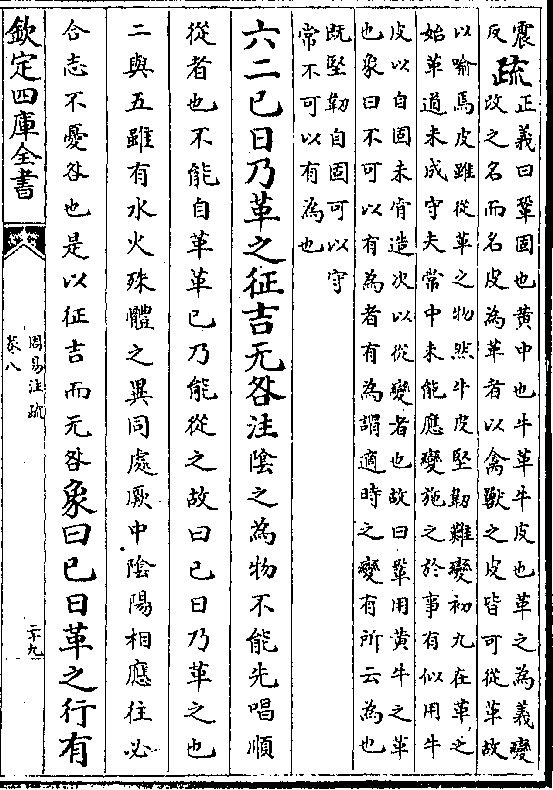 震
反
疏
正義曰鞏固也黃中也牛革牛皮也革之為義變
改之名而名皮為革者以禽獸之皮皆可從革故
以喻焉皮雖從革之物然牛皮堅韌難變初九在革之
始革道未成守夫常中未能應變施之於事有似用牛
皮以自固未肯造次以從變者也故曰鞏用黃牛之革
也象曰不可以有為者有為謂適時之變有所云為也
既堅韌自固可以守
常不可以有為也
六二巳日乃革之征吉无咎注陰之為物不能先唱順
從者也不能自革革巳乃能從之故曰巳日乃革之也
二與五雖有水火殊體之異同處厥中陰陽相應往必
合志不憂咎也是以征吉而无咎象曰巳日革之行有
欽定四庫全書
周易注疏
卷八
二十九